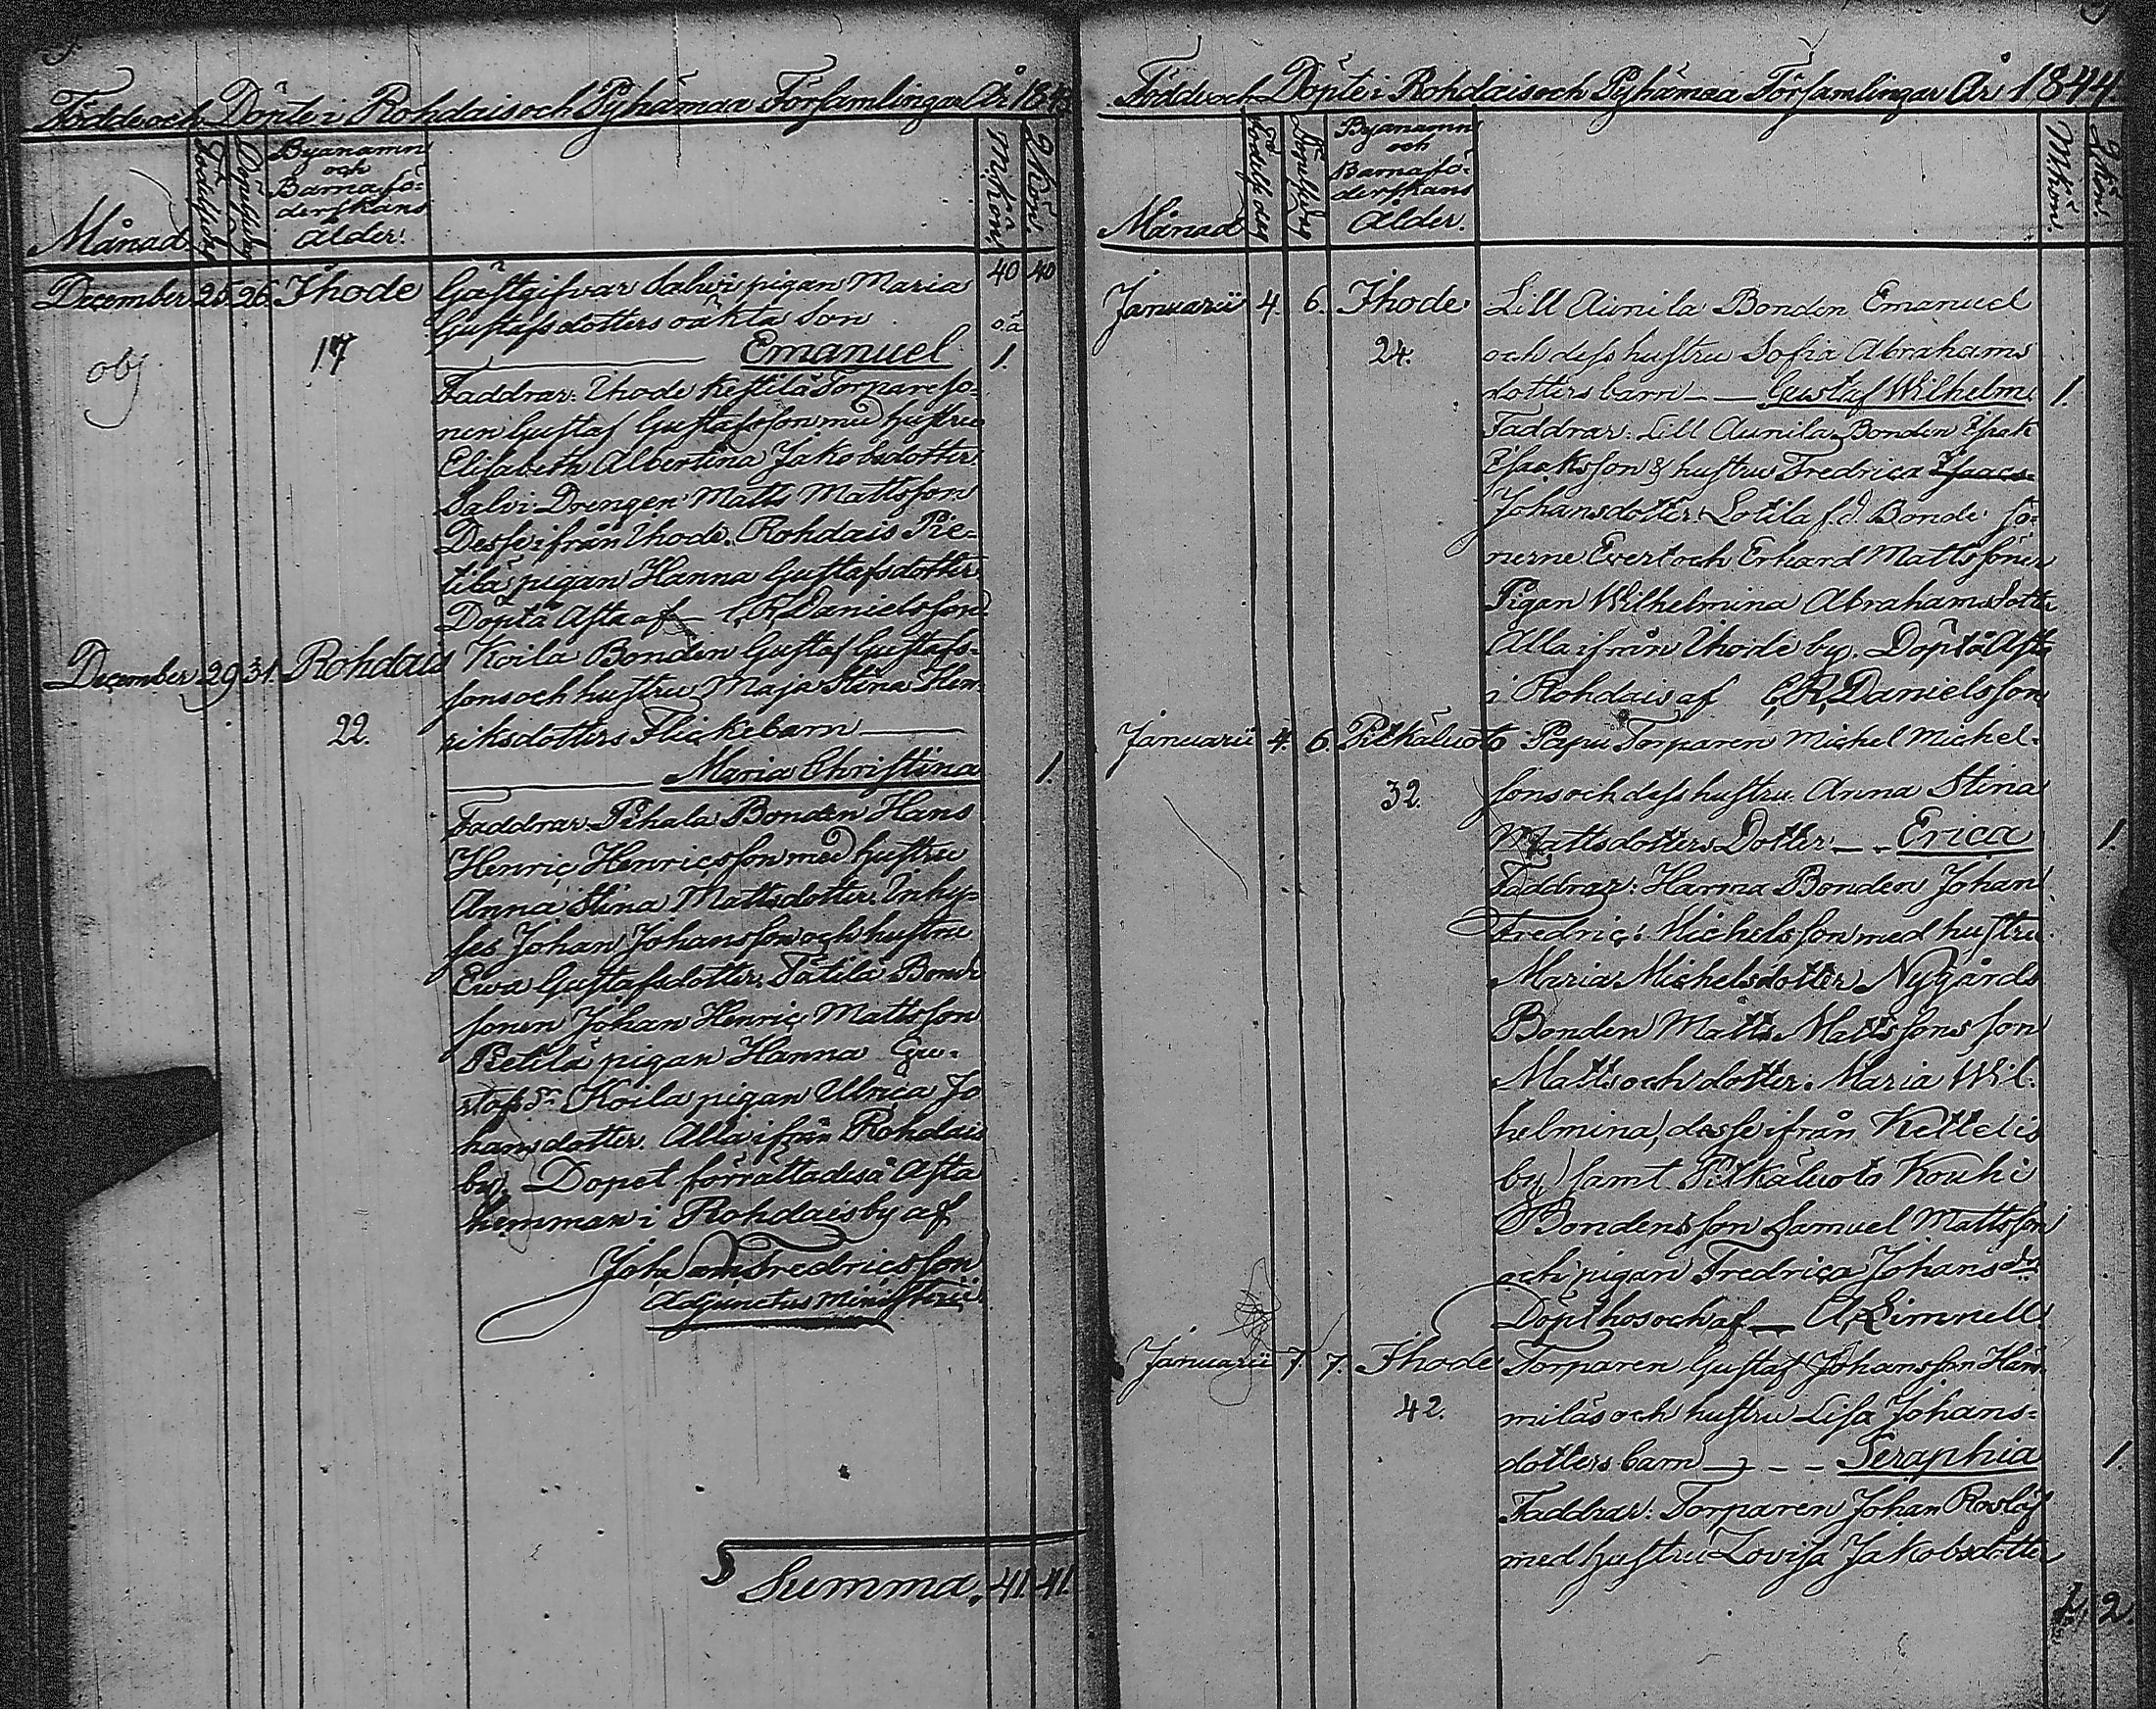 Född och Döpte i Rohdais och Pyhämaa Församlingar År 1843
Månad
Födelsedag
Döpelsedag
Byanamn
och
Barnafö-
derskans
Ålder.
Mkön.
Qkön.
40 40
December 25 26. Ihode Gästgifvar Salvis pigan Maria
Gustafsdotters oäkta Son oä
obj 17 Emanuel 1.
Faddrar: Ihode Kestilä Torpareso-
nen Gustaf Gustafsson med hustru
Elisabeth Albertina Jakobsdotter.
Salvi Drengen Matts Mattsson
Desse ifrån Ihode. Rohdais Pie-
tilä pigan Hanna Gustafsdotter
Döpt å Asta af C.R. Danielsson
December 29 31. Rohdais Koila Bonden Gustaf Gustafs-
sons och hustru Maja Stina Hen-
22. riksdotters Flickebarn
Maria Christina 1.
Faddrar Pihala Bonden Hans
Henric Henricsson med hustru
Anna Stina Mattsdotter. Inhy-
ses Johan Johansson och hustru
Ewa Gustafsdotter. Tätilä Bond
sonen Johan Henric Mattsson
Pietilä pigan Hanna Gu-
stafsdr. Koila pigan Ulrica Jo
hansdotter. Alla ifrån Rohdais
by. Dopet förrättades å Asta
hemman i Rohdais by af
Joh Fredricsson
Adjunctus Ministerii
Summa. 41 41.
Född och Döpte i Rohdais och Pyhämaa Församlingar År 1844
Månad
Födelsedag
Döpelsedag
Byanamn
och
Barnafö-
derskans
Ålder.
Mkön.
Qkön.
Januarii 4. 6. Ihode Lill Aunila Bonden Emanuel
24. och dess hustru Sofia Abrahams
dotters barn Gustaf Wilhelm 1.
Faddrar: Lill Aunila Bonden Isak
Isaksson & hustru Fredrica Isaacs-
Johansdotter. Lotila f.d. Bonde sö-
nerne Evert och Erhard Mattssöner
Pigan Wilhelmina Abrahamsdotter
Alla ifrån Ihode by. Döpt å Asta
i Rohdais af C.R. Danielsson
Januarii 4. 6. Pitkäluoto Papu Torparen Michel Michel-
32. sons och dess hustru Anna Stina
Mattsdotters Dotter. Erica 1.
Faddrar: Harma Bonden Johan
Fredric Michelsson med hustru
Maria Michelsdotter Nygårds
Bonden Matts Mattssons son
Matts och dotter Maria Wil-
helmina, desse ifrån Kettelis
by, samt Pitkäluoto Kouhi
Bondens son Samuel Mattsson
och pigan Fredrica Johansdr
Döpt hos och af A. Limnell
Januarii 7. 7. Ihode Torparen Gustaf Johansson Häm
42. miläs och hustru Lisa Johans-
dotters barn Seraphia 1.
Faddrar: Torparen Johan Roslöf
med hustru Lovisa Jakobsdotter
1. 2.